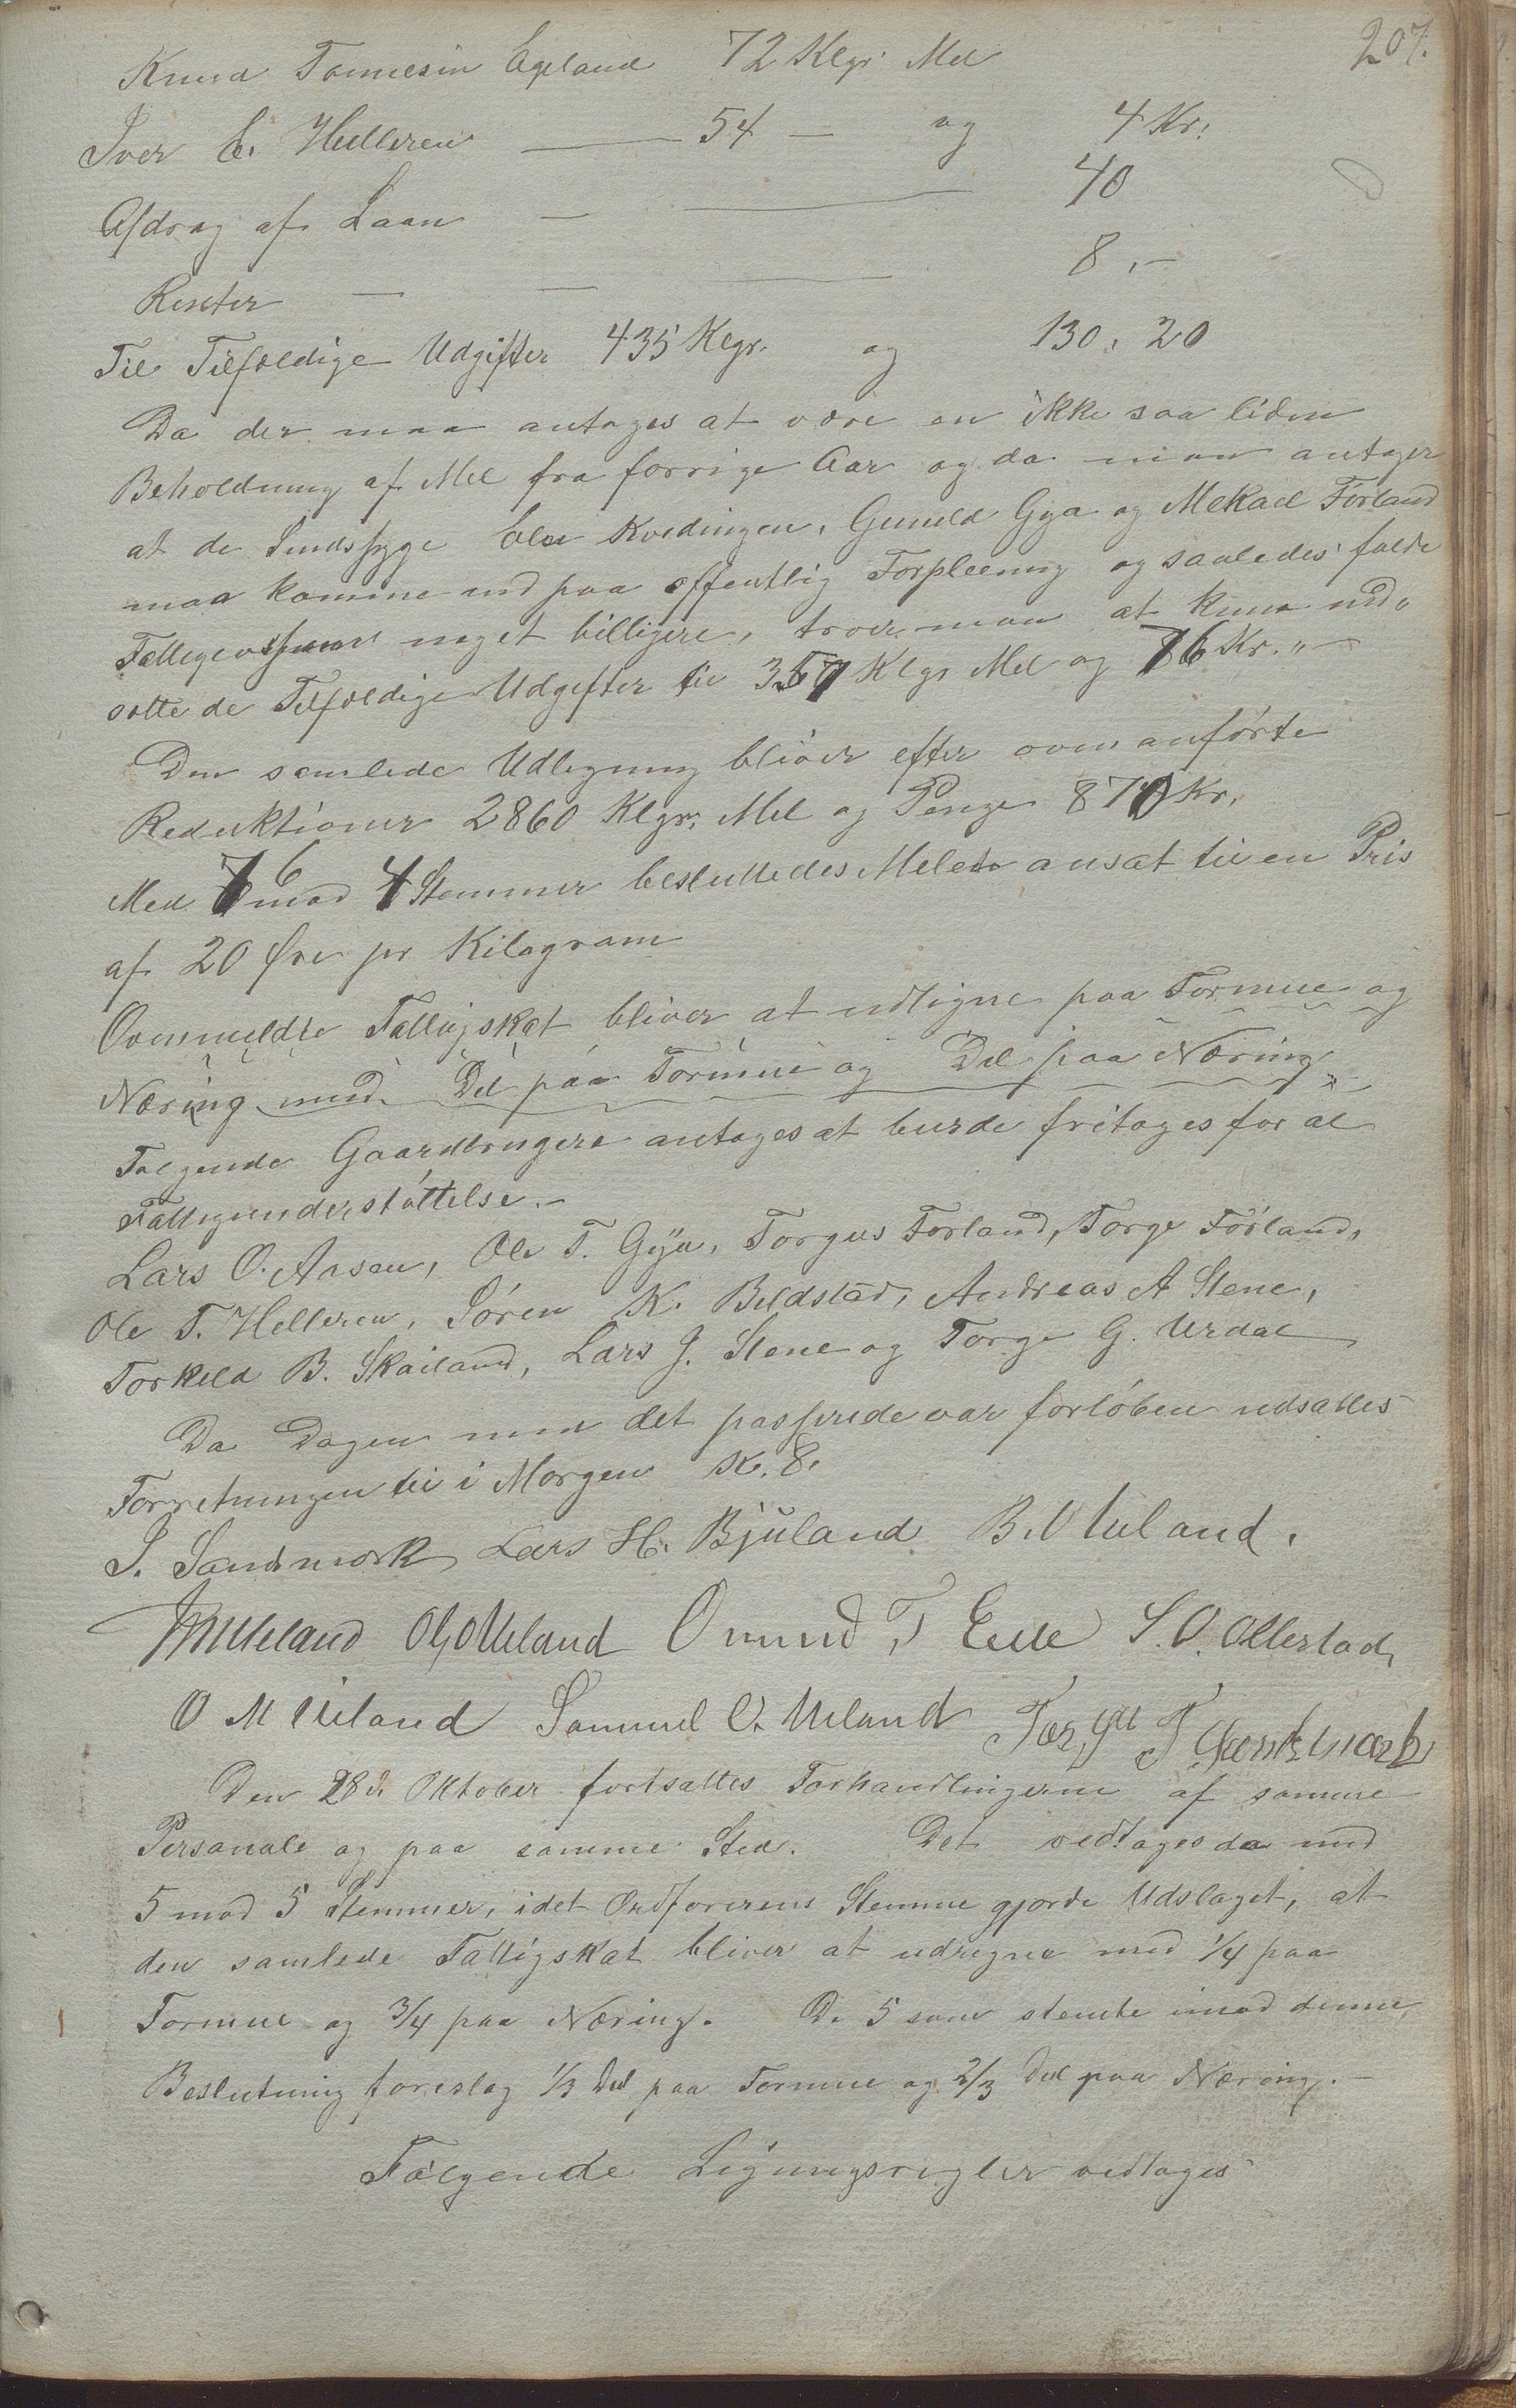 207.
Knud Tønnesen Egeland 72 Klgr. Mel
Iver E. Helleren — 54 — og 4 Kr.
Afdrag af Laan — — 40
Renter — — — 8,-
Til Tilfældige Udgifter 435 Klgr. og 130,20
Da der maa antages at være en ikke saa liden
Beholdning af Mel fra forrige Aar og da man antager
at de Sindssyge Kvedingen, Gunild Gya og Mekael Førland
maa komme ind paa offentlig Forpleening og saaledes falde
Fattigvæsenet noget billigere, troer man at kunne ned-
sætte de Tilfældige Udgifter til 357 Klgr Mel og 76 Kr. „-
Den samlede Udligning bliver efter ovenanførte
Reduktioner 2860 Klgr. Mel og Penge 870 Kr.
Med 6 mod 4 Stemmer besluttedes Melet ansat til en Pris
af 20 Øre pr Kilogram
Ovenmeldte Fattigskat bliver at udligne paa Formue og
Næring med Del paa Formue og Del paa Næring
Følgende Gaardbrugere antages at burde fritages for al
Fattigunderstøttelse.-
Lars O. Aasen, Ole T. Gya, Torgius Førland, Torge Førland,
Ole T. Helleren, Søren K. Bildstad, Andreas A Stene,
Torkild B. Skailand, Lars J. Stene og Torge G. Urdal
Da Dagen med det passerede var forløben udsattes
Forretningen til i Morgen Kl. 8.
S. Sandsmork Lars H. Bjuland B. Ueland.
Ueland O. G. Ueland Omund T Eelle S. O. Ollestad,
O M Ueland Samuel O. Ueland T
Den 28de Oktober fortsattes Forhandlingerne af samme
Personale og paa samme Sted. Det vedtages da med
5 mod 5 Stemmer, idet Ordførerens Stemme gjorde Udslaget, at
den samlede Fattigskat bliver at udregne med 1/4 paa
Formue og 3/4 paa Næring. De 5 som stemte imod denne
Beslutning foreslog 1/3 Del paa Formue og 2/3 Del paa Næring.-
Følgende Ligningsregler vedtages